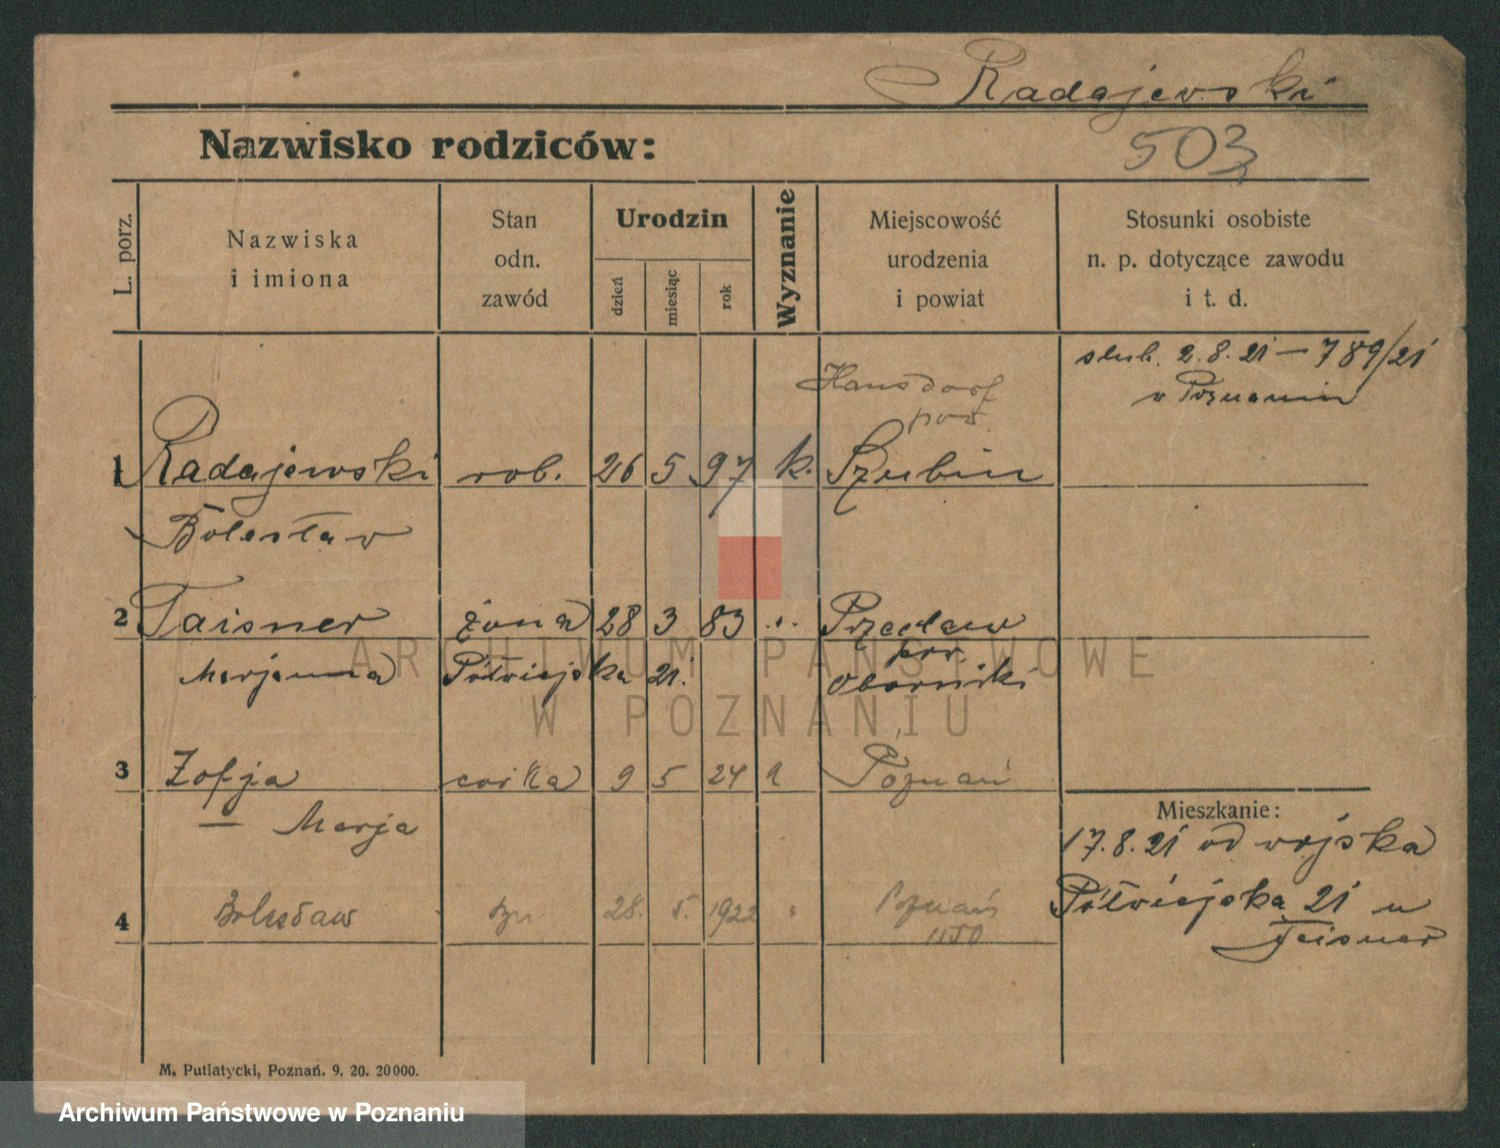 Radajewski
Nazwisko rodziców:
503
L. porz.
Nazwiska
i imiona
Stan
odn.
zawód
Urodzin
dzień
miesiąc
rok
Wyznanie
Miejscowość
urodzenia
i powiat
Stosunki osobiste
n. p. dotyczące zawodu
i t. d.
ślub. 2.8.21 — 789/21
w Poznaniu
Hansdorf
pow.
1 Radajewski rob. 26 5 97 k. Szubin
Bolesław
2 Taisner żona 28 3 83 Przecław
pow
Marjanna Półwiejska 21. Oborniki
3 Zofja córka 9 5 24 Poznań
— Marja
Mieszkanie:
17.8.21 od wojska
Półwiejska 21 u
Taisner
4 Bolesław 28. 5. 1922 " Poznań
1150
M. Putiatycki, Poznań. 9. 20. 20000.
ARCHIWUM PAŃSTWOWE
W POZNANIU
Archiwum Państwowe w Poznaniu